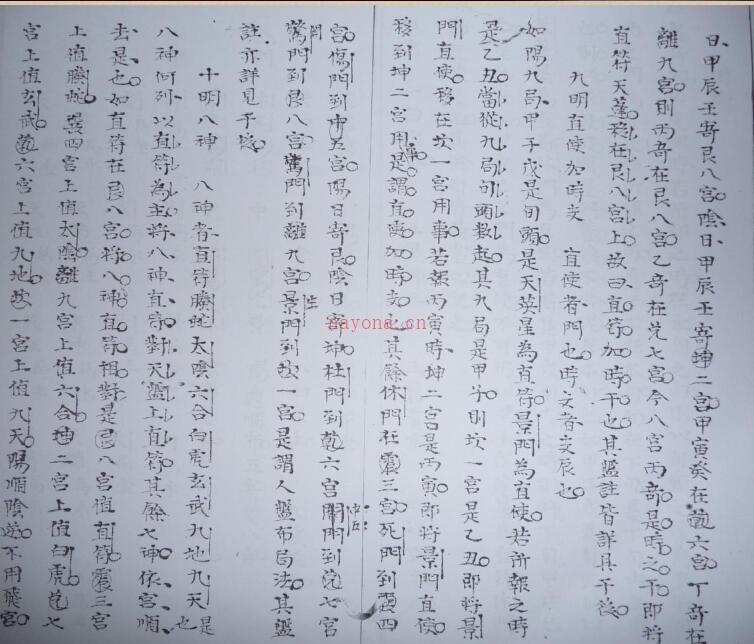 日甲辰壬寄艮八宮陰日甲辰壬寄坤二宮甲寅癸在乾六宮丁奇在
離九宮則丙奇在艮八宮乙奇在兌七宮今八宮丙奇是時之干即將
直符天蓬移在艮八宮上故曰直符加時干也其盤註皆詳具于後
九明直使加時支 直使者門也時支者支辰也
如陽九局甲子戊是旬頭是天英星為直符景門為直使若所報之時
是乙丑當從九局旬頭數起其九局是甲子則坎一宮是乙丑即將景
門直使移在坎一宮用事若報丙寅時坤二宮是丙寅即將景門直使
移到坤二宮用事是謂直使加時支也其餘休門在震三宮死門到四
宮傷門到中五宮陽日寄艮陰日寄坤杜門到乾六宮開門到兌七宮
中五
驚門到艮八宮驚門到離九宮景門到坎一宮是謂人盤布局法其盤
註亦詳見于後
十明八神 八神者直符螣蛇太陰六合白虎玄武九地九天也是
八神何列以直符為主將八神直符對天盤上直符其餘七神依宮順
去是也如直符在艮八宮將八神直符相對是艮八宮值直符震三宮
上值螣蛇巽四宮上值太陰離九宮上值六合坤二宮上值白虎兌七
宮上值玄武乾六宮上值九地坎一宮上值九天陽順陰逆不用飛宮
nayona.cn